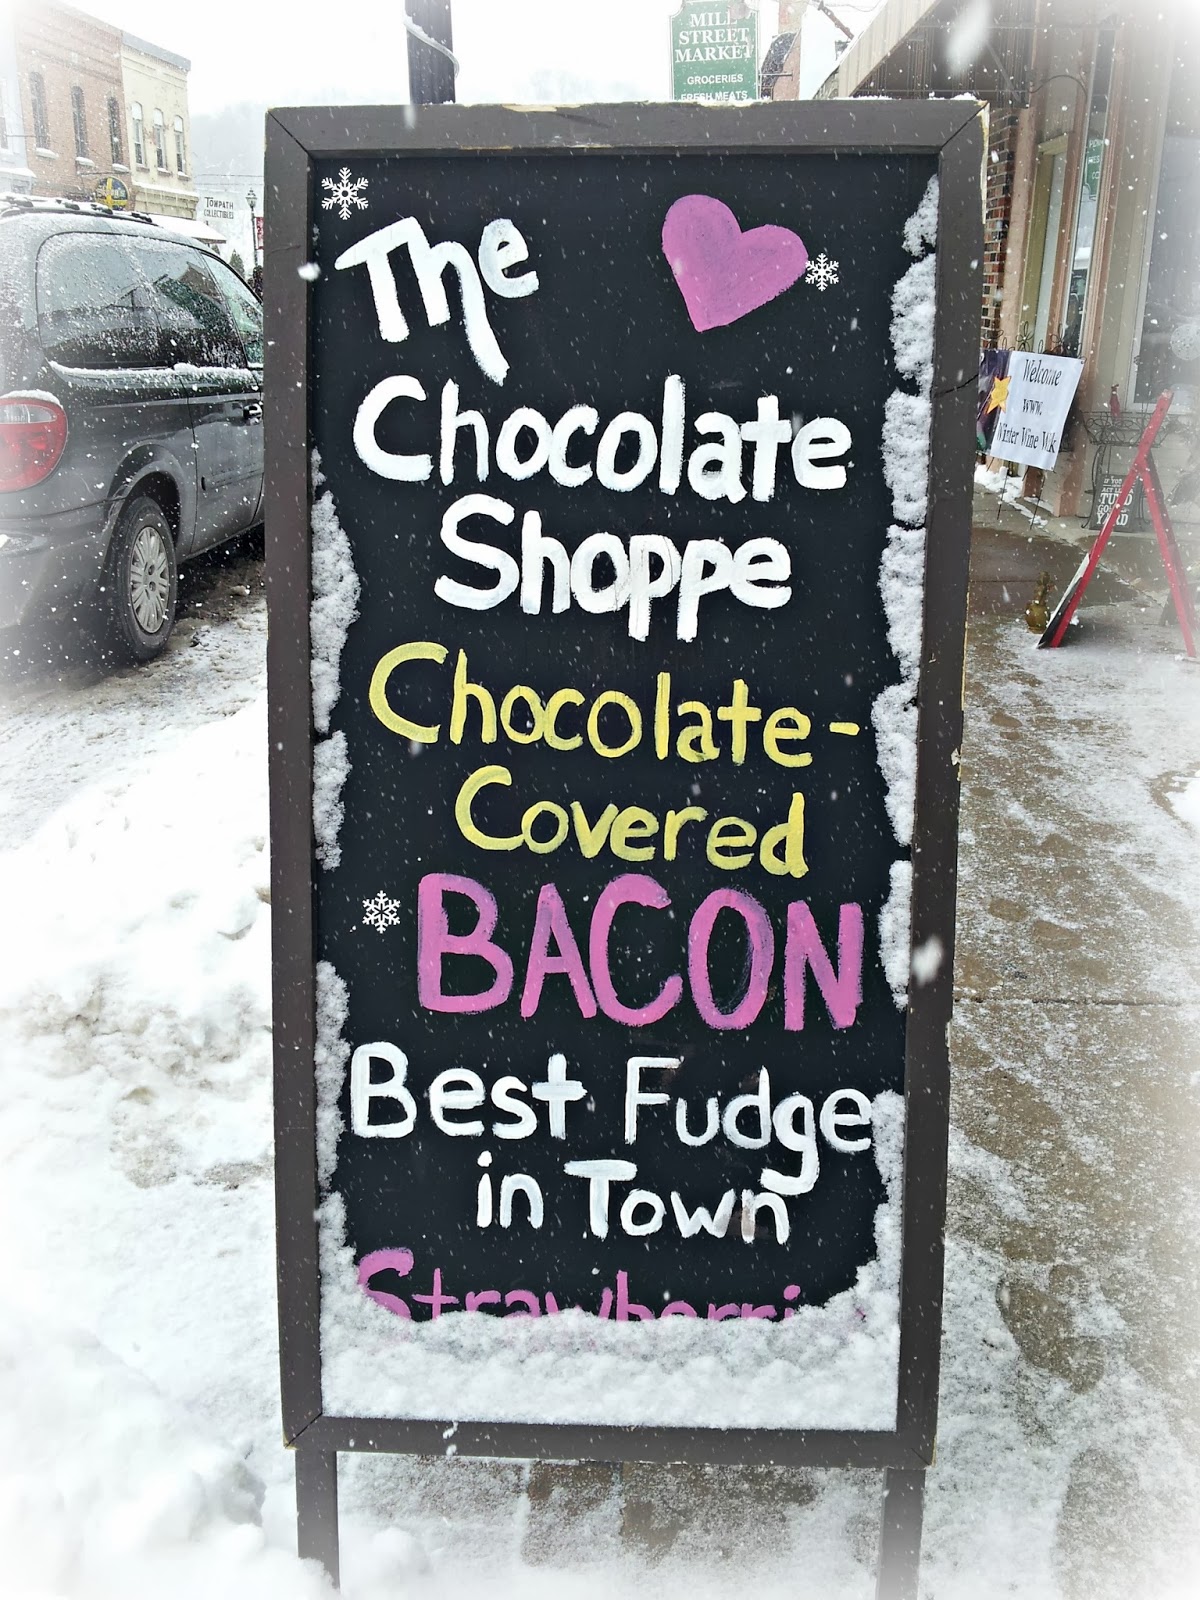 MILL
STREET
MARKET
GROCERIES
FRESH MEATS
TOWPATH
COLLECTIBLES
The
Chocolate
Shoppe
Chocolate-
Covered
BACON
Best Fudge
in Town
Welcome
www.
Winter Wine Walk
IF YOU
TURD
YARD